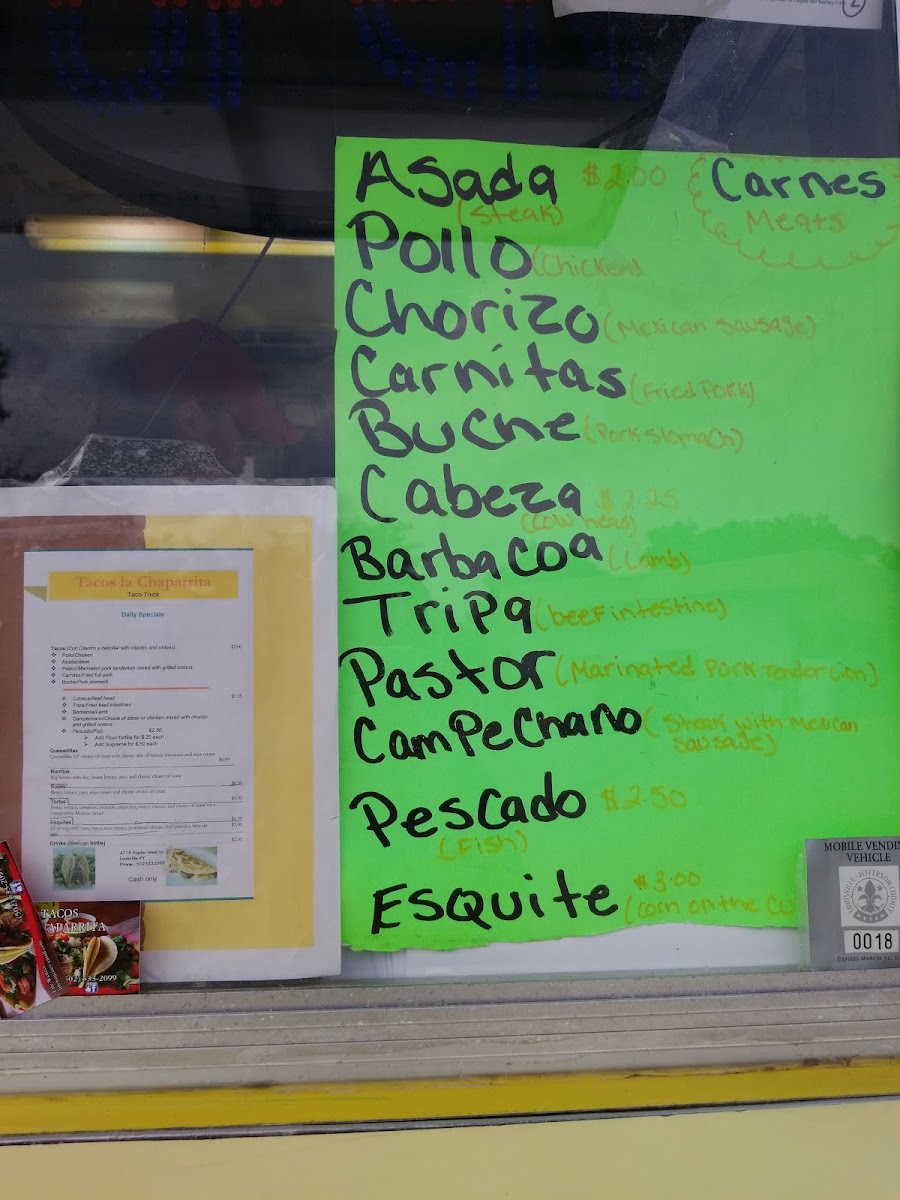 Asada $2.00
(Steak)
Carnes
Meats
Pollo (Chicken)
Chorizo (Mexican Sausage)
Carnitas (Fried Pork)
Buche (Pork Stomach)
Cabeza $2.25
(Cow head)
Barbacoa (Lamb)
Tripa (beef intestine)
Pastor (Marinated Pork Tender Lion)
Campechano (Steak with Mexican
Sausage)
Pescado $2.50
(Fish)
Esquite $3.00
(Corn on the Cu
Tacos la Chaparrita
Taco Truck
Daily Specials
Tacos (Con Cilantro y cebolla/ with cilantro and onions)
Pollo/Chicken
Asada/steak
Pastor/Marinated pork tenderloin mixed with grilled onions
Carnitas/Fried fat pork
Buche/Pork stomach
Cabeza/Beef head $2.25
Tripa/Fried beef intestines
Barbacoa/Lamb
Campechano/Choice of steak or chicken mixed with chorizo
and grilled onions
Pescado/Fish $2.50
Add Flour tortilla for $.25 each
Add Supreme for $.50 each
Quesadillas
Burritos
Sopes
Tortas
Esquites
Drinks (Mexican bottle)
Louisville KY
Cash only
TACOS
MOBILE VENDIN
VEHICLE
LOUISVILLE-JEFFERSON COUNTY
0018
EXPIRES MARCH 31,